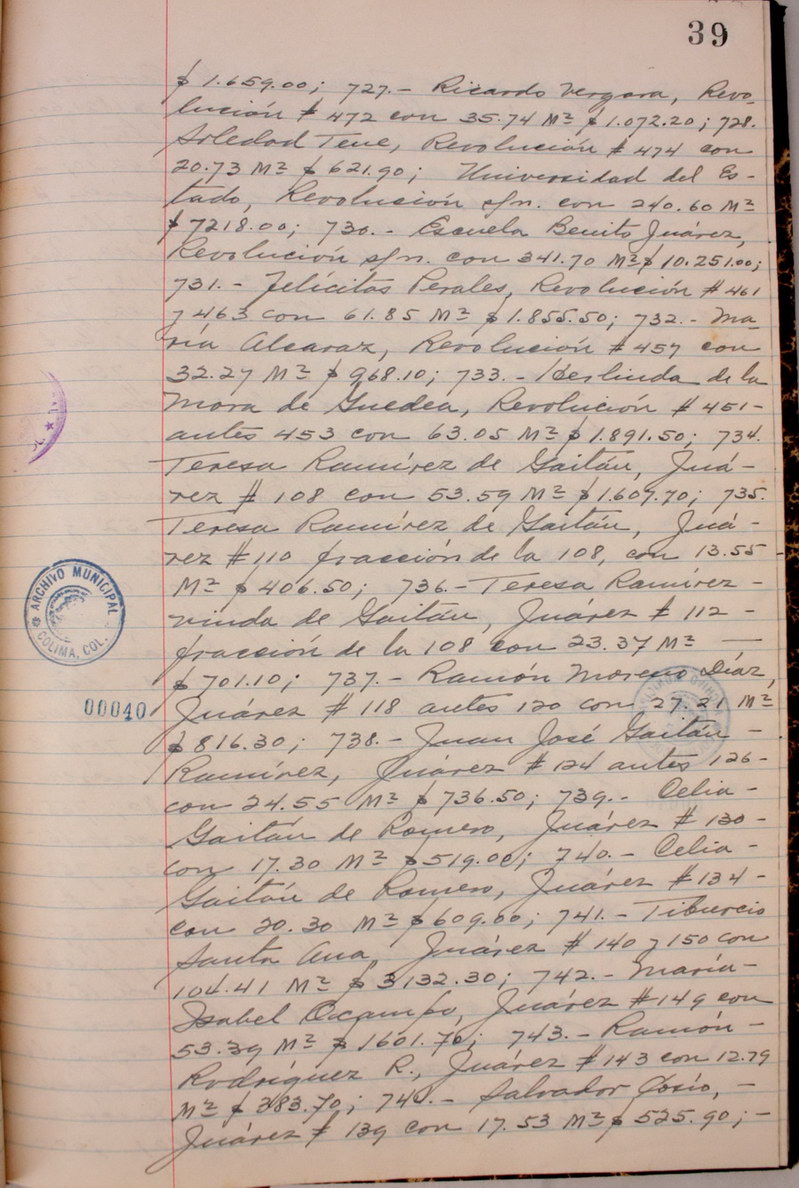 39
$ 1.659.00; 727.- Ricardo Vergara, Revo-
lución # 472 con 35.74 M² $ 1.072.20; 728.
Soledad Tene, Revolución # 474 con
20.73 M² $ 621.90; Universidad del Es-
tado, Revolución s/n. con 240.60 M²
$ 7218.00; 730.- Escuela Benito Juárez,
Revolución s/n. con 341.70 M² $ 10.251.00;
731.- Felícitas Perales, Revolución # 461
y 463 con 61.85 M² $ 1.855.50; 732.- Ma-
ría Alcaraz, Revolución # 457 con
32.27 M² $ 968.10; 733.- Herlinda de la
Mora de Guedea, Revolución # 451-
antes 453 con 63.05 M² $ 1.891.50; 734.
Teresa Ramírez de Gaitán, Juá-
rez # 108 con 53.59 M² $ 1.607.70; 735.
Teresa Ramírez de Gaitán, Juá-
rez # 110 fracción de la 108, con 13.55 -
M² $ 406.50; 736.- Teresa Ramírez -
viuda de Gaitán, Juárez # 112 -
fracción de la 108 con 23.37 M² —
$ 701.10; 737.- Ramón Moreno Díaz,
ARCHIVO MUNICIPAL
COLIMA, COL.
00040
Juárez # 118 antes 120 con 27.21 M²
$ 816.30; 738.- Juan José Gaitán -
Ramírez, Juárez # 124 antes 126-
con 24.55 M² $ 736.50; 739.- Celia -
Gaitán de Romero, Juárez # 130-
con 17.30 M² $ 519.00; 740.- Celia -
Gaitán de Romero, Juárez # 134-
con 20.30 M² $ 609.00; 741.- Tiburcio
Santa Ana, Juárez # 140 y 150 con
104.41 M² $ 3132.30; 742.- María-
Isabel Ocampo, Juárez # 149 con
53.39 M² $ 1601.70; 743.- Ramón -
Rodríguez R., Juárez # 143 con 12.79
M² $ 383.70; 744.- Salvador Cosío, -
Juárez # 139 con 17.53 M² $ 525.90; -